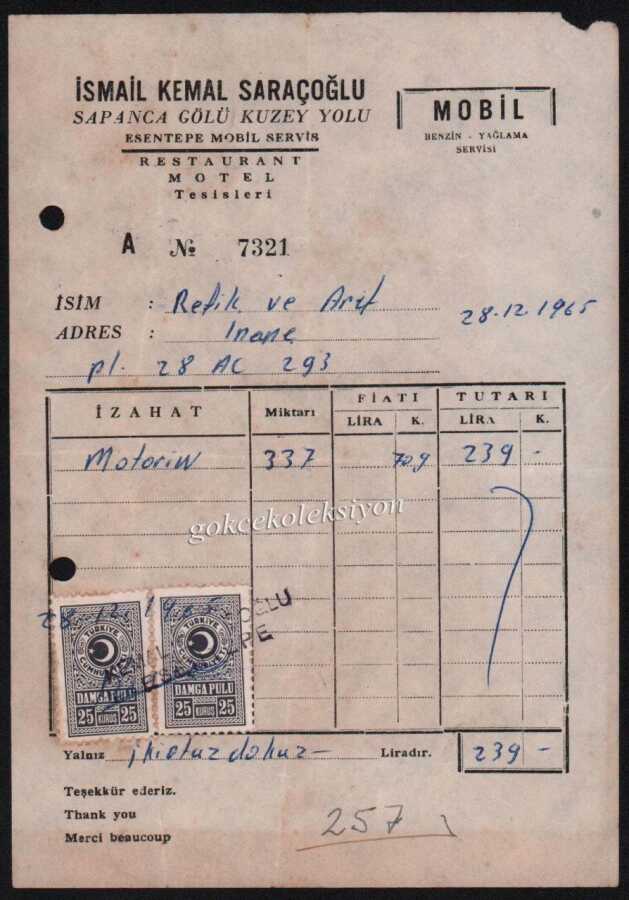 İSMAİL KEMAL SARAÇOĞLU
SAPANCA GÖLÜ KUZEY YOLU
ESENTEPE MOBİL SERVİS
RESTAURANT
MOTEL
Tesisleri
MOBİL
BENZİN - YAĞLAMA
SERVİSİ
A № 7321
İSİM : Refik ve Arif
28.12.1965
ADRES :
pl. 28 AC 293
İZAHAT Miktarı FİATI TUTARI
LİRA K. LİRA K.
Motorin 337 70.9 239 -
gokcekoleksiyon
28.12.1965
TÜRKİYE TÜRKİYE
DAMGA PULU DAMGA PULU
25 KURUŞ 25 25 KURUŞ 25
Yalnız Liradır. 239 -
Teşekkür ederiz.
Thank you
Merci beaucoup
257